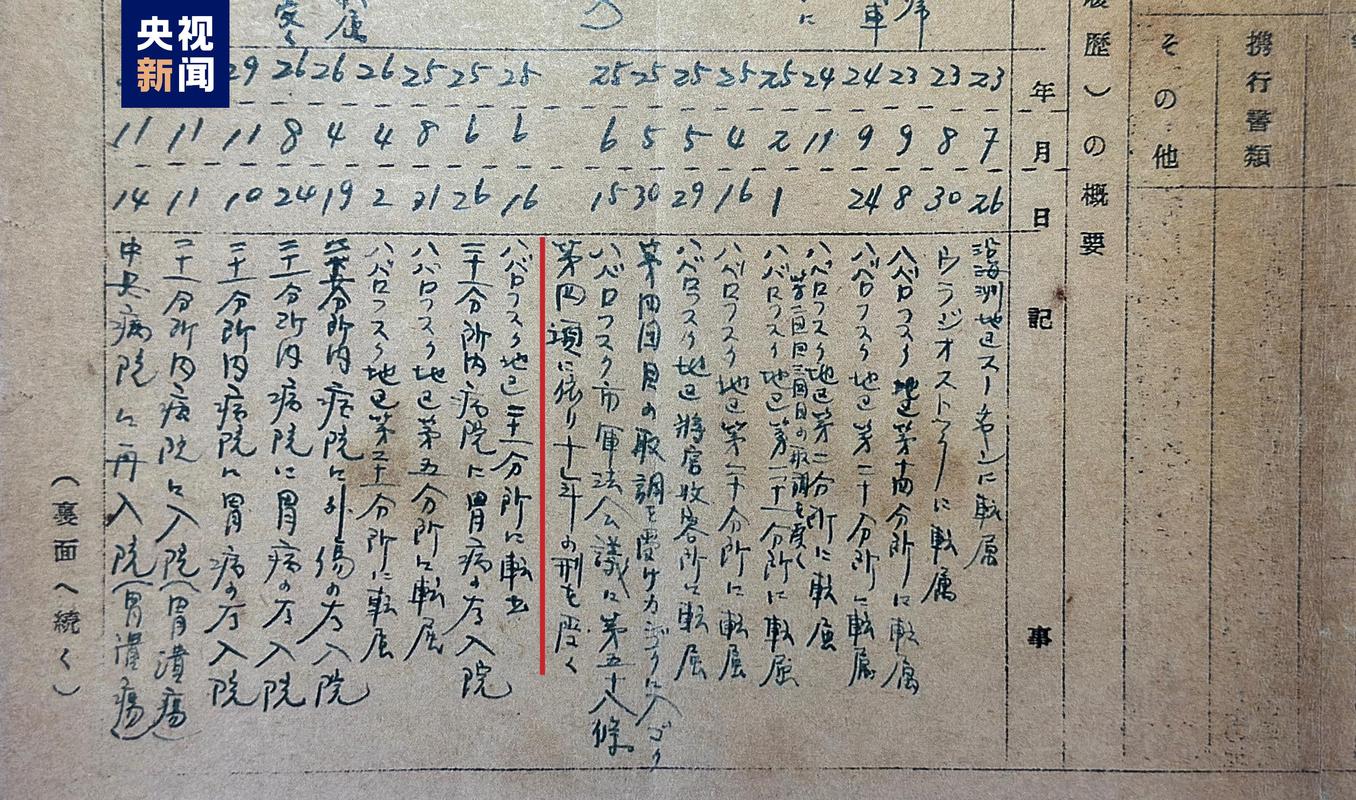 央视
新闻
携行書類
その他
歴)の概要
年
月
日
記
事
23 7 26 沿海州地区スーチャンに転属
23 8 30 ウラジオストックに転属
23 9 8 ハバロフスク地区第十四分所に転属
24 9 24 ハバロフスク地区第二十分所に転属
24 11 ハバロフスク地区第二分所に転属
第二回目三回目の取調を受く
25 2 1 ハバロフスク地区第二十一分所に転属
25 4 16 ハバロフスク地区第二十分所に転属
25 5 29 ハバロフスク地区将官收容所に転属
25 5 30 第四回目の取調を受け
25 6 15 ハバロフスク市軍法会議に第五十八條
第四項に依り十七年の刑を受く
25 6 16 ハバロフスク地区二十一分所に転出
25 6 26 二十一分所内病院に胃病の為入院
25 8 21 ハバロフスク地区第五分所に転属
26 4 2 ハバロフスク地区第二十一分所に転属
26 4 19 分所内病院に外傷の為入院
26 8 24 分所内病院に胃病の為入院
29 11 10 分所内病院に胃病の為入院
11 11 二十一分所内病院に入院(胃潰瘍)
11 14 中央病院に再入院(胃潰瘍)
(裏面へ続く)